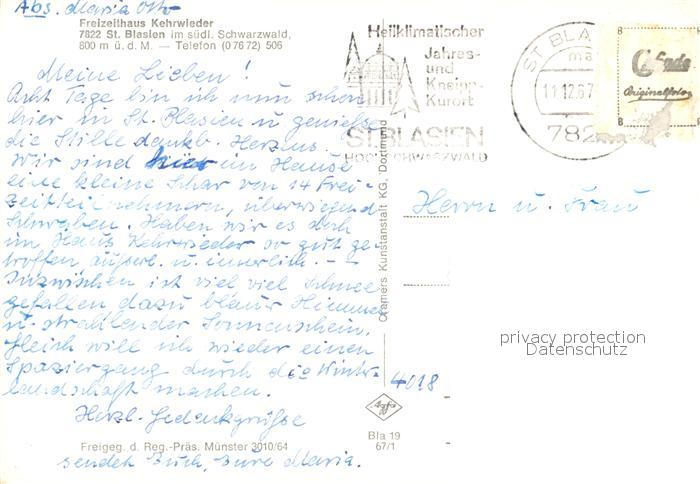 Abs. Maria Otto
Freizeithaus Kehrwieder
7822 St. Blasien im südl. Schwarzwald,
800 m ü. d. M — Telefon (0 76 72) 506
Meine Lieben !
Acht Tage bin ich nun schon
hier in St. Blasien u genieße
die Stille dankb. Herzens.
Wir sind hier im Hause
eine kleine Schar von 14 Frei-
zeitteilnehmern, überwiegend
Schwaben. Haben wir es doch
im Haus Kehrwieder so gut ge-
troffen äußerl. u. innerlich. - -
Inzwischen ist viel viel Schnee
gefallen dazu blauer Himmel
u. strahlender Sonnenschein.
Gleich will ich wieder einen
Spaziergang durch die Winter-
landschaft machen.
Herzl. Gedenkgrüße
sendet Euch, Eure Maria.
Freigeg. d. Reg.-Präs. Münster 3010/64
Cramers Kunstanstalt KG, Dortmund
Heilklimatischer
Jahres-
und
Kneipp-
Kurort
ST. BLASIEN
HOCHSCHWARZWALD
ST BLA
11.12.67
782
Originalfoto
Herrn u. Frau
privacy protection
Datenschutz
4018
Agfa
Bla 19
67/1